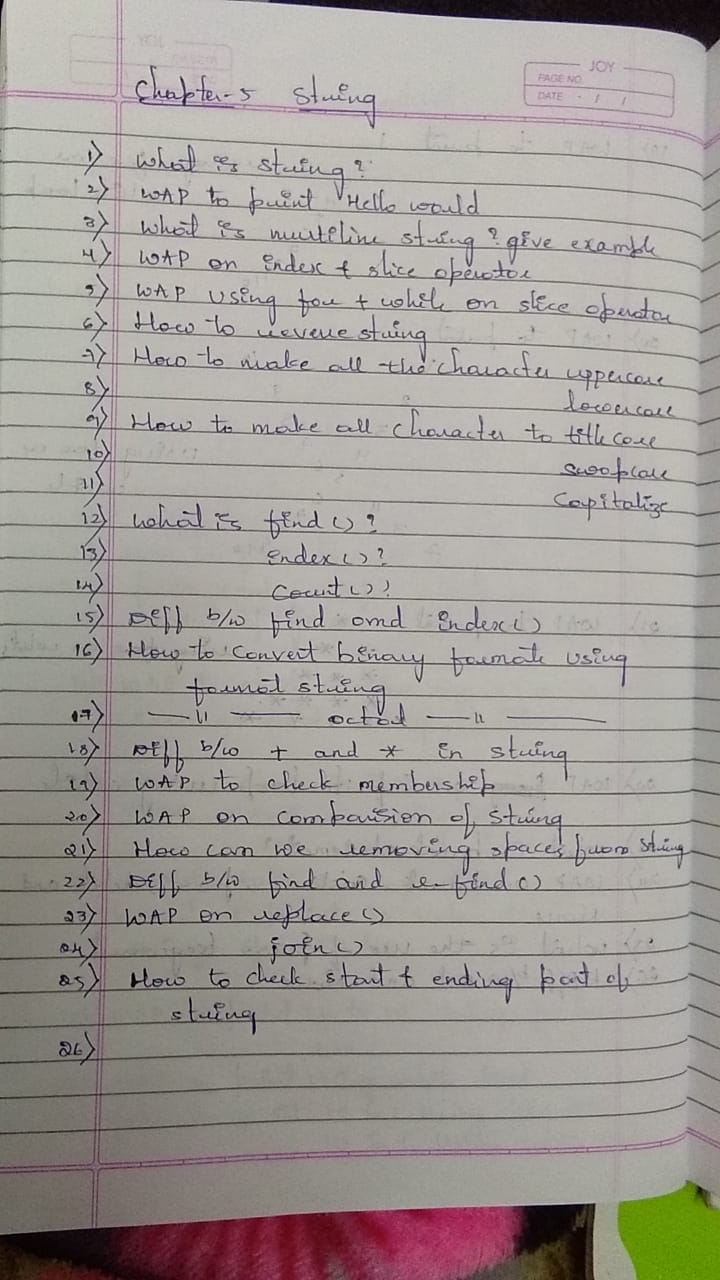 JOY
PAGE NO.
DATE / /
Chapter-5 String
1) What is string?
2) WAP to print Hello would
3) What is multiline string? give example
4) WAP on index & slice operator
5) WAP using for & while on slice operator
6) How to reverse string
7) How to make all the character uppercase
8) lowercase
9) How to make all character to title case
10) swapcase
11) Capitalize
12) what is find()?
13) index()?
14) count()?
15) Diff b/w find and index()
16) How to convert binary formate using
format string
17) —〃— octal —〃—
18) Diff b/w + and * in string
19) WAP to check membership
20) WAP on comparision of string
21) How can we removing spaces from string
22) Diff b/w find and r-find()
23) WAP on replace()
24) join()
25) How to check start & ending part of
string
26)